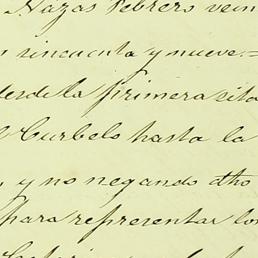 Nazas Febrero vein
cincuenta y nueve.=
desde la primera sita
Curbelo hasta la
y no negando dho
para representar los